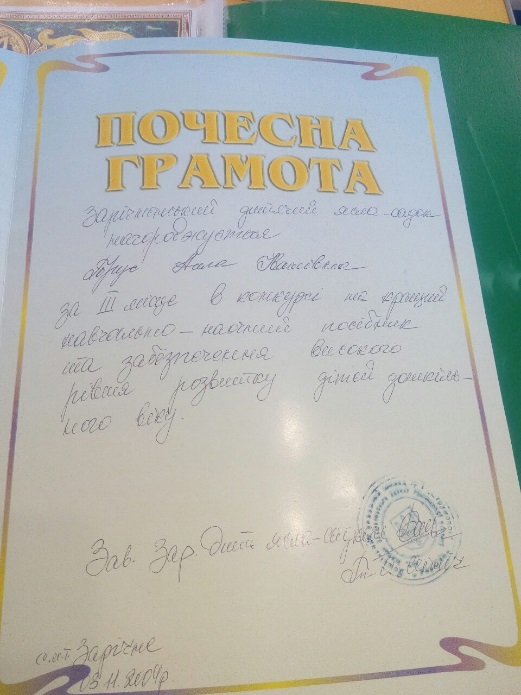 ПОЧЕСНА
ГРАМОТА
Зарічненський дитячий ясла-садок
нагороджується
Трус Алла Іванівна
за III місце в конкурсі на кращий
навчально-наочний посібник
та забезпечення високого
рівня розвитку дітей дошкіль-
ного віку.
Зав. Зар. Дит. ясла-садка
смт Зарічне
13.11.2004р